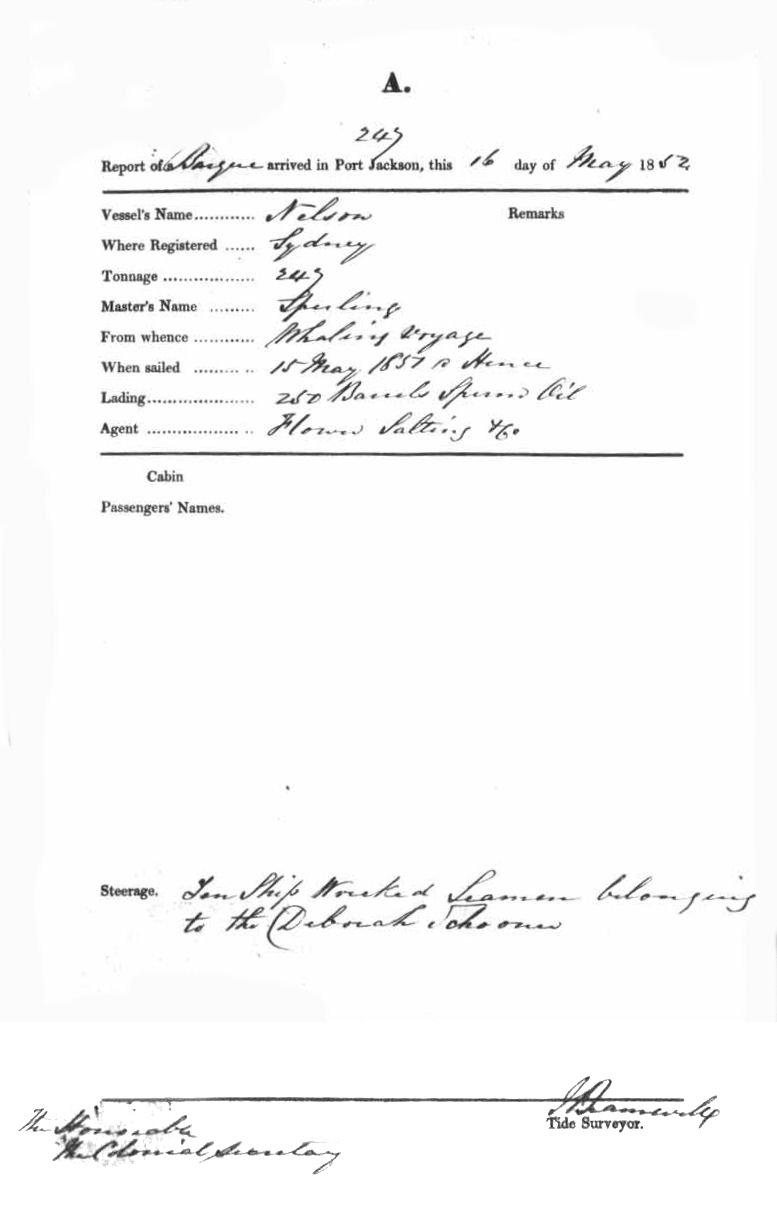 A.
247
Report of a Barque arrived in Port Jackson, this 16 day of May 1852
Vessel's Name............ Nelson Remarks
Where Registered ...... Sydney
Tonnage .................. 247
Master's Name ......... Sperling
From whence ............ Whaling Voyage
When sailed ......... .. 15 May 1851 Hence
Lading..................... 250 Barrels Sperm Oil
Agent .................. .. Flower Salting &Co
Cabin
Passengers' Names.
Steerage. Ten Ship Wrecked Seamen belonging
to the Deborah Schooner
Tide Surveyor.
The Honorable
The Colonial Secretary